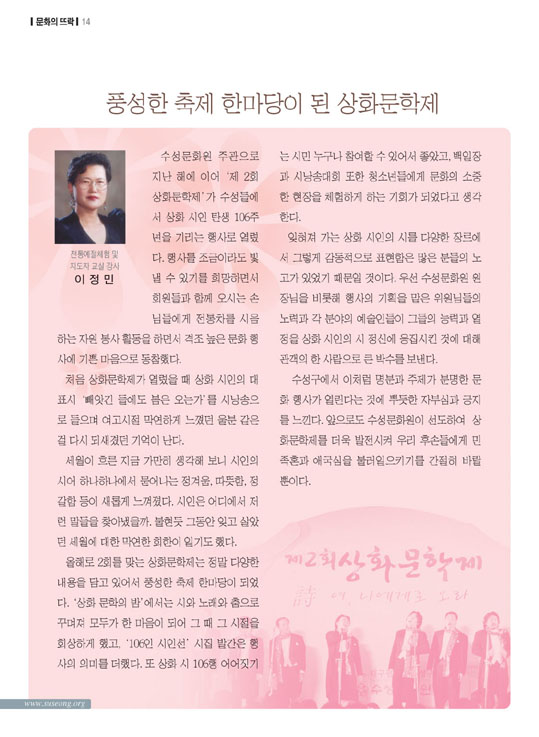 문화의 뜨락 14
풍성한 축제 한마당이 된 상화문학제
전통예절체험 및
지도자 교실 강사
이 정 민
수성문화원 주관으로
지난 해에 이어 '제 2회
상화문학제'가 수성들에
서 상화 시인 탄생 106주
년을 기리는 행사로 열렸
다. 행사를 조금이라도 빛
낼 수 있기를 희망하면서
회원들과 함께 오시는 손
님들에게 전통차를 시음
하는 자원 봉사 활동을 하면서 격조 높은 문화 행
사에 기쁜 마음으로 동참했다.
처음 상화문학제가 열렸을 때 상화 시인의 대
표시 '빼앗긴 들에도 봄은 오는가'를 시낭송으
로 들으며 여고시절 막연하게 느꼈던 울분 같은
걸 다시 되새겼던 기억이 난다.
세월이 흐른 지금 가만히 생각해 보니 시인의
시어 하나하나에서 묻어나는 정겨움, 따뜻함, 정
갈함 등이 새롭게 느껴졌다. 시인은 어디에서 저
런 말들을 찾아냈을까. 불현듯 그동안 잊고 살았
던 세월에 대한 막연한 회한이 일기도 했다.
올해로 2회를 맞는 상화문학제는 정말 다양한
내용을 담고 있어서 풍성한 축제 한마당이 되었
다. '상화 문학의 밤'에서는 시와 노래와 춤으로
꾸며져 모두가 한 마음이 되어 그 때 그 시절을
회상하게 했고, '106인 시인선' 시집 발간은 행
사의 의미를 더했다. 또 상화 시 106행 이어짓기
는 시민 누구나 참여할 수 있어서 좋았고, 백일장
과 시낭송대회 또한 청소년들에게 문화의 소중
한 현장을 체험하게 하는 기회가 되었다고 생각
한다.
잊혀져 가는 상화 시인의 시를 다양한 장르에
서 그렇게 감동적으로 표현함은 많은 분들의 노
고가 있었기 때문일 것이다. 우선 수성문화원 원
장님을 비롯해 행사의 기획을 맡은 위원님들의
노력과 각 분야의 예술인들이 그들의 능력과 열
정을 상화 시인의 시 정신에 응집시킨 것에 대해
관객의 한 사람으로 큰 박수를 보낸다.
수성구에서 이처럼 명분과 주제가 분명한 문
화 행사가 열린다는 것에 뿌듯한 자부심과 긍지
를 느낀다. 앞으로도 수성문화원이 선도하여 상
화문학제를 더욱 발전시켜 우리 후손들에게 민
족혼과 애국심을 불러일으키기를 간절히 바랄
뿐이다.
제2회 상화문학제
詩여, 나에게로 오라
www.suseong.org